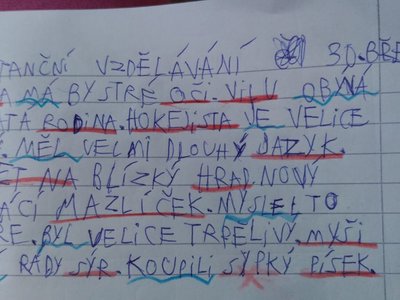 TANČNÍ VZDĚLÁVÁNÍ 30. BŘE
A MÁ BYSTRÉ OČI. VILU OBÝVÁ
ATA RODINA. HOKEJISTA JE VELICE
. MĚL VELMI DLOUHÝ JAZYK.
ET NA BLÍZKÝ HRAD. NOVÝ
ÁCÍ MAZLÍČEK. MYSLEL TO
ŘE. BYL VELICE TRPĚLIVÝ. MYŠI
RÁDY SÝR. KOUPILI SYPKÝ PÍSEK.